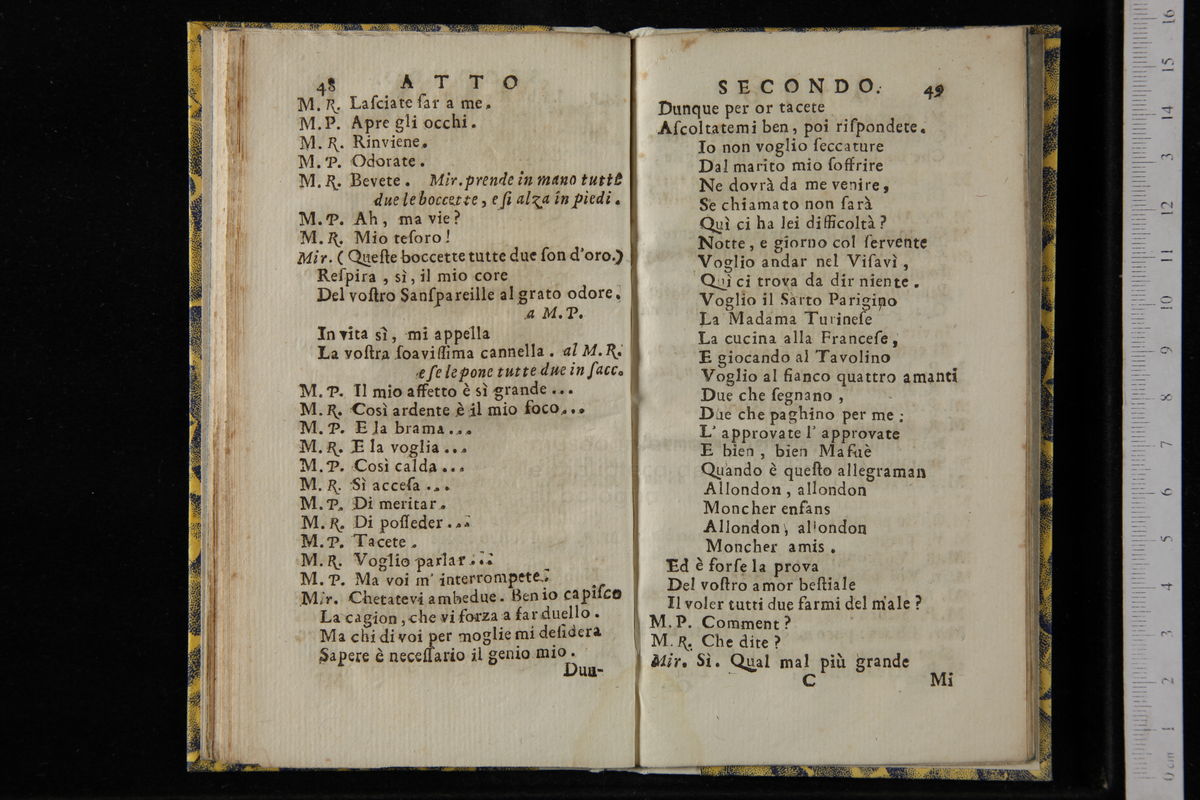 48 ATTO
M. R. Laſciate far a me.
M. P. Apre gli occhi.
M. R. Rinviene.
M. P. Odorate.
M. R. Bevete. Mir. prende in mano tutte
due le boccette, e ſi alza in piedi.
M. P. Ah, ma vie?
M. R. Mio teſoro!
Mir. (Queſte boccette tutte due ſon d'oro.)
Reſpira, sì, il mio core
Del voſtro Sanſpareille al grato odore.
a M. P.
In vita sì, mi appella
La voſtra ſoaviſſima cannella. al M. R.
e ſe le pone tutte due in ſacc.
M. P. Il mio affetto è sì grande...
M. R. Così ardente è il mio foco...
M. P. E la brama...
M. R. E la voglia...
M. P. Così calda...
M. R. Sì acceſa...
M. P. Di meritar.
M. R. Di poſſeder...
M. P. Tacete.
M. R. Voglio parlar...
M. P. Ma voi m' interrompete.
Mir. Chetatevi ambedue. Ben io capiſco
La cagion, che vi forza a far duello.
Ma chi di voi per moglie mi deſidera
Sapere è neceſſario il genio mio.
Dun-
SECONDO. 49
Dunque per or tacete
Aſcoltatemi ben, poi riſpondete.
Io non voglio ſeccature
Dal marito mio ſoffrire
Ne dovrà da me venire,
Se chiamato non ſarà
Quì ci ha lei difficoltà?
Notte, e giorno col ſervente
Voglio andar nel Viſavì,
Quì ci trova da dir niente.
Voglio il Sarto Parigino
La Madama Turineſe
La cucina alla Franceſe,
E giocando al Tavolino
Voglio al fianco quattro amanti
Due che ſegnano,
Due che paghino per me:
L' approvate l' approvate
E bien, bien Mafuè
Quando è queſto allegraman
Allondon, allondon
Moncher enfans
Allondon, allondon
Moncher amis.
Ed è forſe la prova
Del voſtro amor beſtiale
Il voler tutti due farmi del male?
M. P. Comment?
M. R. Che dite?
Mir. Sì. Qual mal più grande
C Mi
0 cm 1 2 3 4 5 6 7 8 9 10 11 12 3 14 15 16